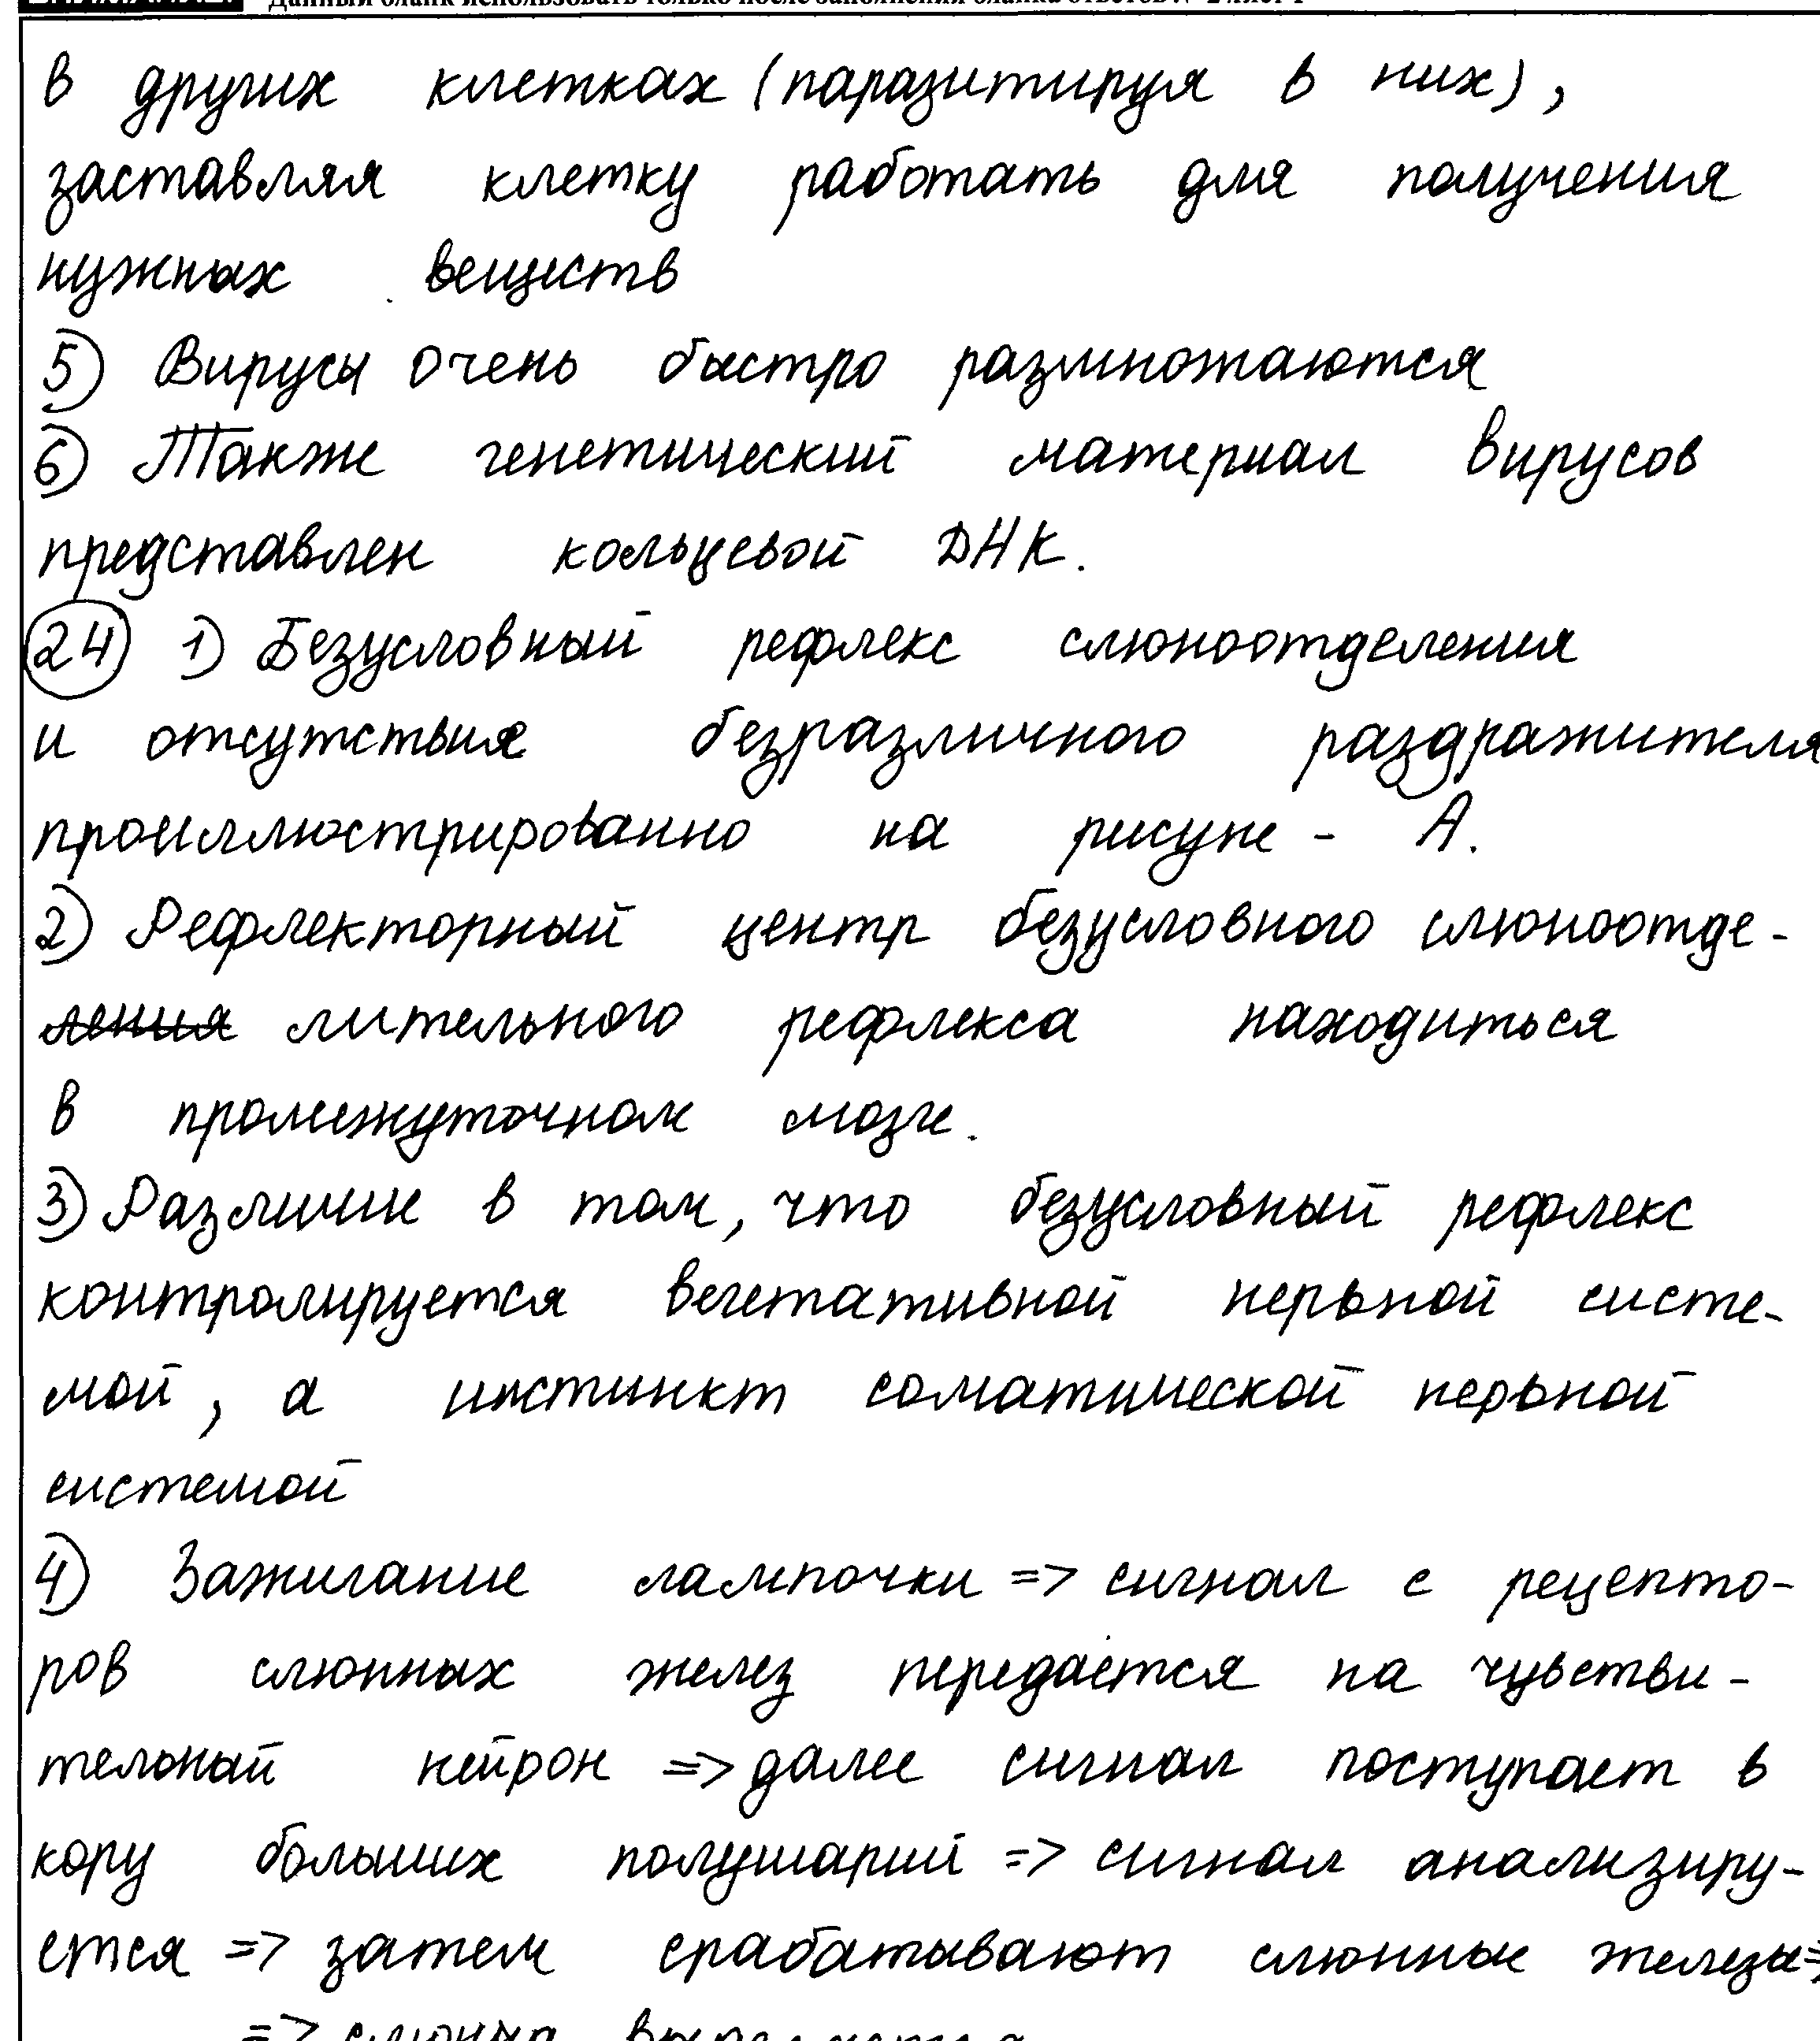 Данный бланк использовать только после заполнения бланка ответов № 2 лист 1
в других клетках (паразитируя в них),
заставляя клетку работать для получения
нужных веществ
5) Вирусы очень быстро размножаются
6) Также генетический материал вирусов
представлен кольцевой ДНК.
24 1) Безусловный рефлекс слюноотделения
и отсутствия безразличного раздражителя
проиллюстрированно на рисуне - А.
2) Рефлекторный центр безусловного слюноотде-
ления лительного рефлекса находиться
в промежуточном мозге.
3) Различие в том, что безусловный рефлекс
контролируется вегетативной нервной систе-
мой, а инстинкт соматической нервной
системой
4) Зажигание лампочки => сигнал с рецепто-
ров слюнных желез передается на чувстви-
тельный нейрон => далее сигнал поступает в
кору больших полушарий => сигнал анализиру-
ется => затем срабатывают слюнные железы =>
=> слюна